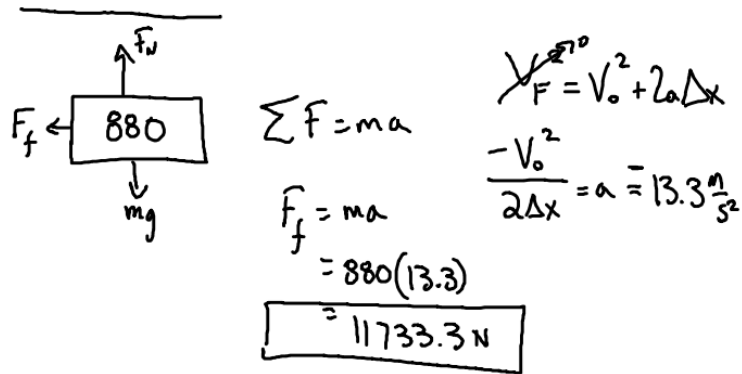 F_N
F_f
880
mg
∑F = ma
F_f = ma
= 880(13.3)
= 11733.3 N
V_F^2 → 0 = V_0^2 + 2aΔx
-V_0^2 / 2Δx = a = -13.3 m/s^2